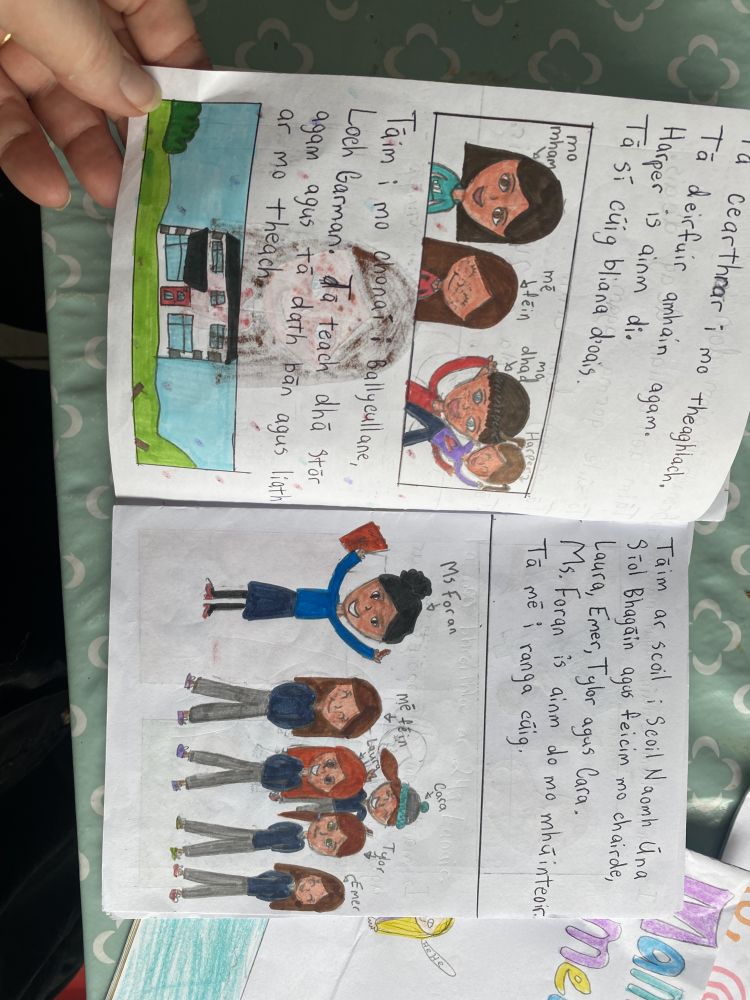 Tá cearthrar i mo theagghlach.
Tá deirfuir amháin agam.
Harper is ainm di.
Tá sí cúig bliana d'aois.
mo
mham
mé
féin
mo
dhad
Harper
Táim i mo chonaí i Ballycullane,
Loch Garman. Tá teach dhá stór
agam agus tá dath bán agus liath
ar mo theach.
Táim ar scoil i Scoil Naomh Úna
Síol Bhagáin agus feicim mo chairde,
Laura, Emer, Tylor agus Cara.
Ms. Foran is ainm do mo mhúinteoir.
Tá mé i ranga cúig.
Ms Foran
mé féin
Laura
Cara
Tylor
Emer
HeHe